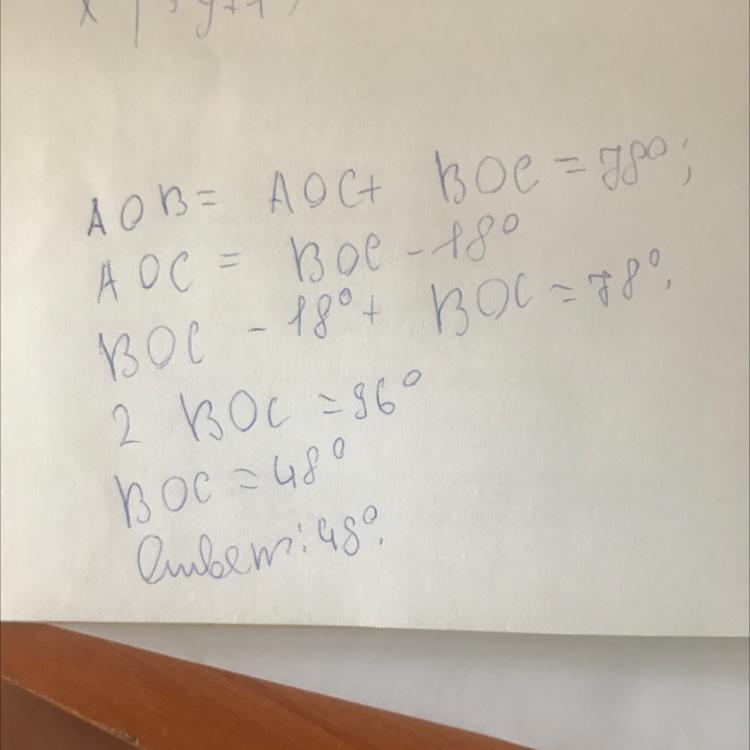 AOB = AOC + BOC = 78°;
AOC = BOC - 18°
BOC - 18° + BOC = 78°.
2 BOC = 96°
BOC = 48°
Ответ: 48°.